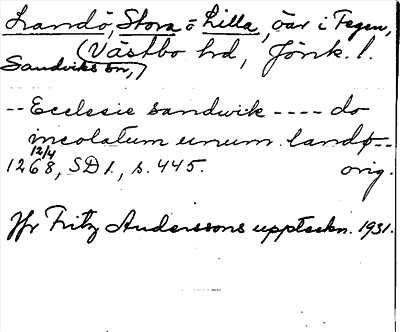 Landö, Stora o Lilla, öar i Fegen,
(Västbo hd, Jönk. l.
Sandviks sn,)
-- Ecclesie sandwik ---- do
incolatum unum landþ--
12/4
1268, SD 1, s. 445. orig.
Jfr Fritz Anderssons uppteckn. 1931.